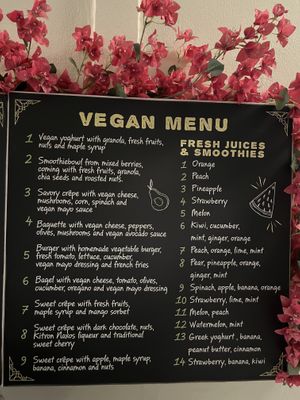 VEGAN MENU
1 Vegan yoghurt with granola, fresh fruits,
nuts and maple syrup
2 Smoothiebowl from mixed berries,
coming with fresh fruits, granola,
chia seeds and roasted nuts.
3 Savory crêpe with vegan cheese,
mushrooms, corn, spinach and
vegan mayo sauce
4 Baguette with vegan cheese, peppers,
olives, mushrooms and vegan avocado sauce
5 Burger with homemade vegetable burger,
fresh tomato, lettuce, cucumber,
vegan mayo dressing and french fries
6 Bagel with vegan cheese, tomato, olives,
cucumber, oregano and vegan mayo dressing
7 Sweet crêpe with fresh fruits,
maple syrup and mango sorbet
8 Sweet crêpe with dark chocolate, nuts,
Kitron Naxos liqueur and traditional
sweet cherry
9 Sweet crêpe with apple, maple syrup,
banana, cinnamon and nuts
FRESH JUICES
& SMOOTHIES
1 Orange
2 Peach
3 Pineapple
4 Strawberry
5 Melon
6 Kiwi, cucumber,
mint, ginger, orange
7 Peach, orange, lime, mint
8 Pear, pineapple, orange,
ginger, mint
9 Spinach, apple, banana, orange
10 Strawberry, lime, mint
11 Melon, peach
12 Watermelon, mint
13 Greek yoghurt, banana,
peanut butter, cinnamon
14 Strawberry, banana, kiwi